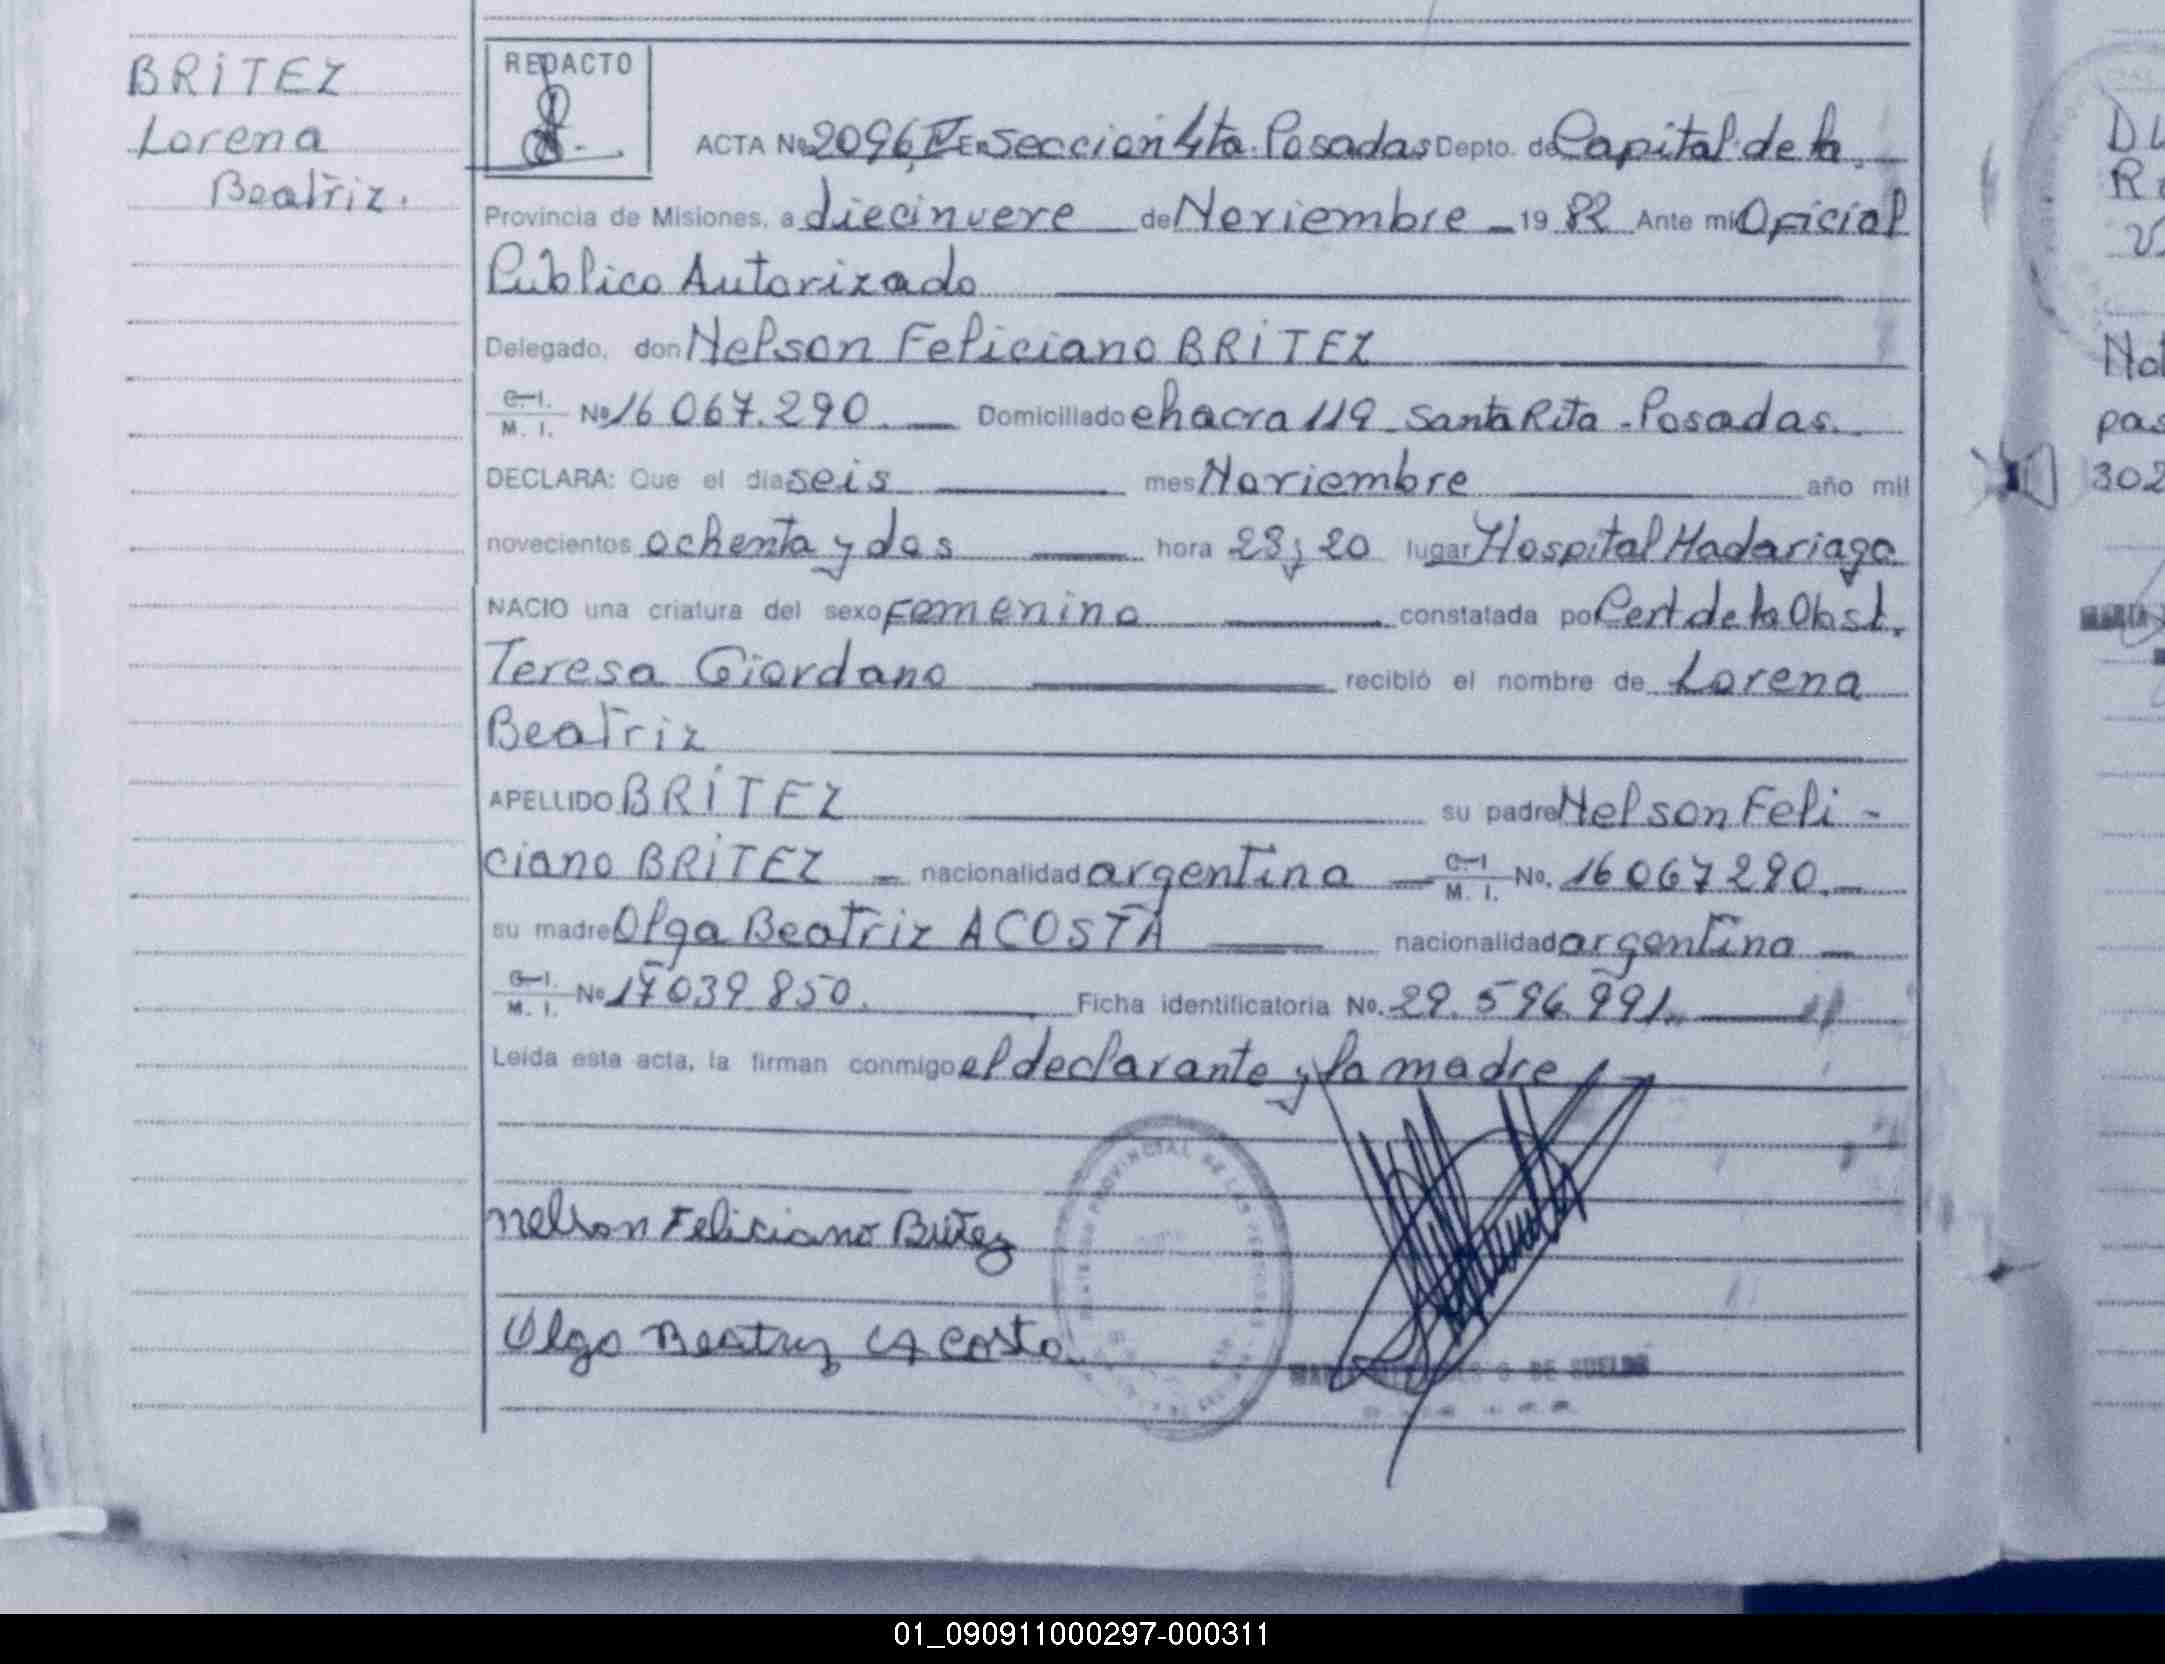 BRITEZ
Lorena
Beatriz.
REDACTO
ACTA Nº 2096, IV En Sección 4ta. Posadas Depto. de Capital de la
Provincia de Misiones, a diecinueve de Noviembre 19 82 Ante mí Oficial
Publico Autorizado
Delegado, don Nelson Feliciano BRITEZ
C. I.
M. I. Nº 16 067.290. Domiciliado chacra 119 Santa Rita - Posadas.
DECLARA: Que el día seis mes Noviembre año mil
novecientos ochenta y dos hora 23 y 20 lugar Hospital Madariaga
NACIO una criatura del sexo Femenino constatada po Cert de la Obst.
Teresa Giordano recibió el nombre de Lorena
Beatriz
APELLIDO BRITEZ su padre Nelson Feli-
ciano BRITEZ nacionalidad argentina C. I. M. I. No. 16 067 290.
su madre Olga Beatriz ACOSTA nacionalidad argentina
C. I.
M. I. Nº 17 039 850. Ficha identificatoria No. 29.596.991.
Leída esta acta, la firman conmigo el declarante y la madre
Nelson Feliciano Britez
Olga Beatriz Acosta
PROVINCIAL DE LAS PERSONAS
DE SUELDO
DU
R
Not
pas
302
01_090911000297-000311